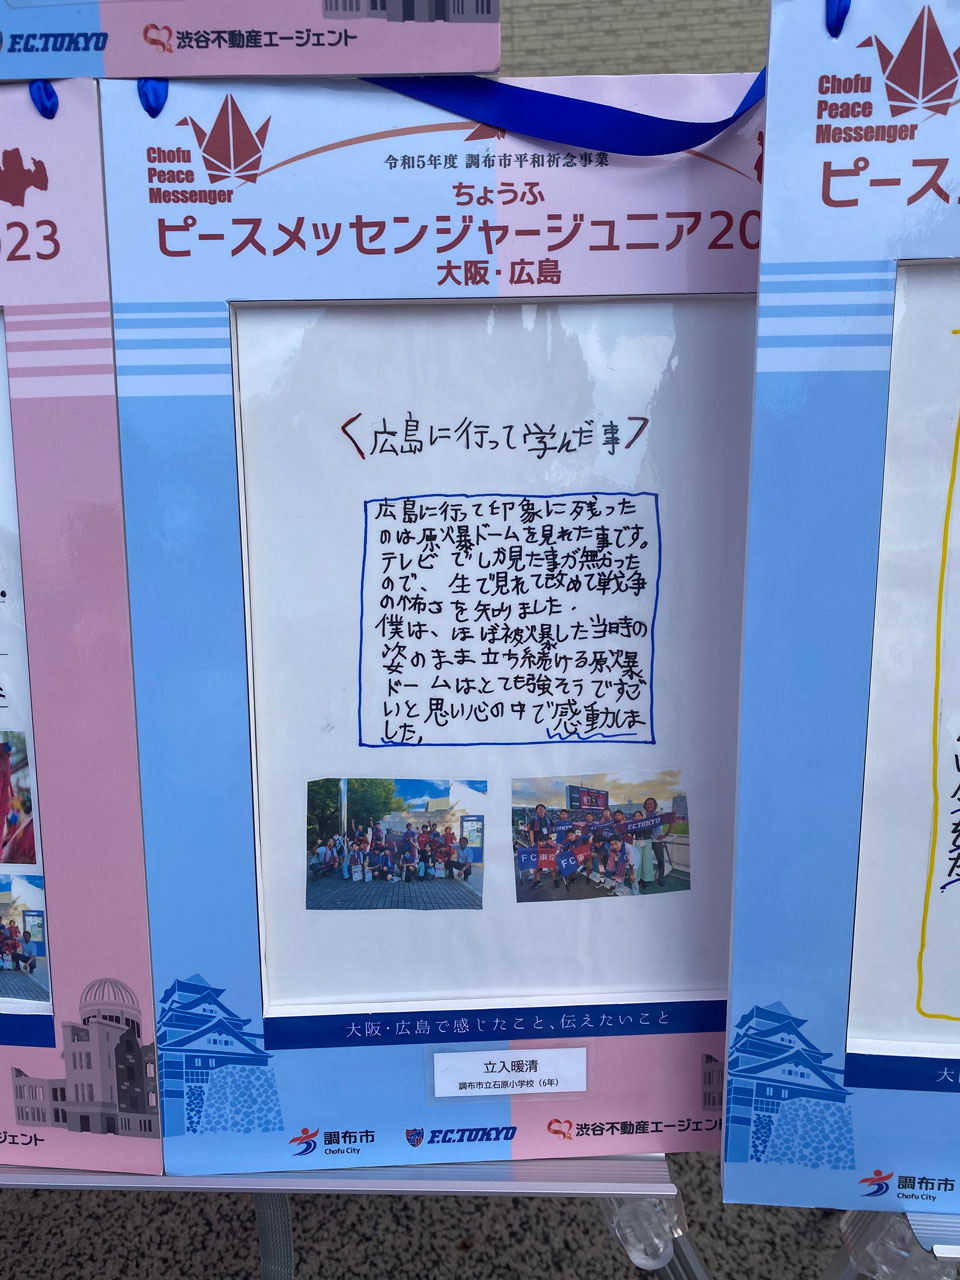 F.C.TOKYO
渋谷不動産エージェント
Chofu
Peace
Messenger
令和5年度 調布市平和祈念事業
ちょうふ
ピースメッセンジャージュニア20
大阪・広島
<広島に行って学んだ事>
広島に行って印象に残った
のは原爆ドームを見れた事です。
テレビでしか見た事が無かった
ので、生で見れて改めて戦争
の怖さを知りました.
僕は、ほぼ被爆した当時の
姿のまま立ち続ける原爆
ドームは、とても強そうですご
いと思い心の中で感動しま
した,
F.C.TOKYO
FC東京
FC東
大阪・広島で感じたこと、伝えたいこと
立入暖清
調布市立石原小学校（6年）
調布市
Chofu City
F.C.TOKYO
渋谷不動産エージェン
023
ジェント
Chofu
Peace
Messenger
ピース
大
調布市
Chofu City